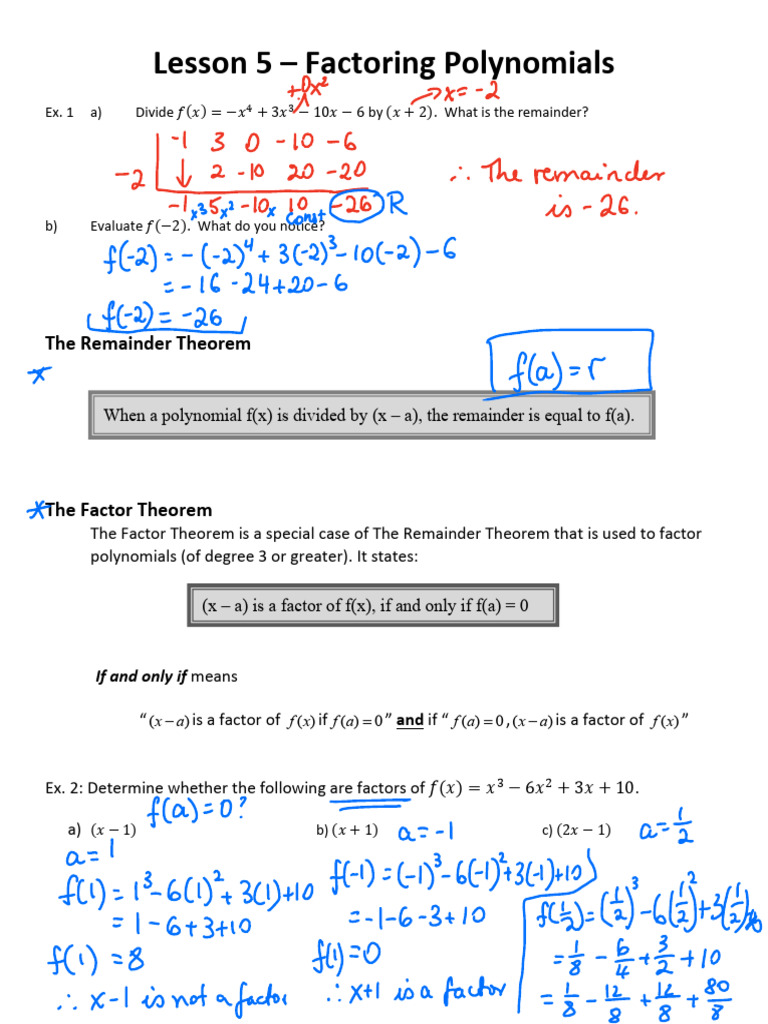 Lesson 5 – Factoring Polynomials
+0x²
→x=-2
Ex. 1 a) Divide f(x) = −x⁴ + 3x³ − 10x − 6 by (x + 2). What is the remainder?
-1 3 0 -10 -6
-2 ↓ 2 -10 20 -20
-1x³ 5x² -10x 10 const -26 R
∴ The remainder
is -26.
b) Evaluate f(−2). What do you notice?
f(-2) = -(-2)⁴ + 3(-2)³ - 10(-2) - 6
= -16 -24+20-6
f(-2) = -26
The Remainder Theorem
f(a)=r
*
When a polynomial f(x) is divided by (x – a), the remainder is equal to f(a).
*The Factor Theorem
The Factor Theorem is a special case of The Remainder Theorem that is used to factor
polynomials (of degree 3 or greater). It states:
(x – a) is a factor of f(x), if and only if f(a) = 0
If and only if means
“(x−a) is a factor of f(x) if f(a)=0” and if “f(a)=0,(x−a) is a factor of f(x)”
Ex. 2: Determine whether the following are factors of f(x) = x³ − 6x² + 3x + 10.
f(a)=0?
a) (x − 1)
a=1
f(1)=1³-6(1)²+3(1)+10
=1-6+3+10
f(1)=8
∴ x-1 is not a factor
b) (x + 1) a=-1
f(-1)=(-1)³-6(-1)²+3(-1)+10
=-1-6-3+10
f(1)=0
∴ x+1 is a factor
c) (2x − 1) a=1/2
f(1/2)=(1/2)³-6(1/2)²+3(1/2)+10
=1/8-6/4+3/2+10
=1/8-12/8+12/8+80/8